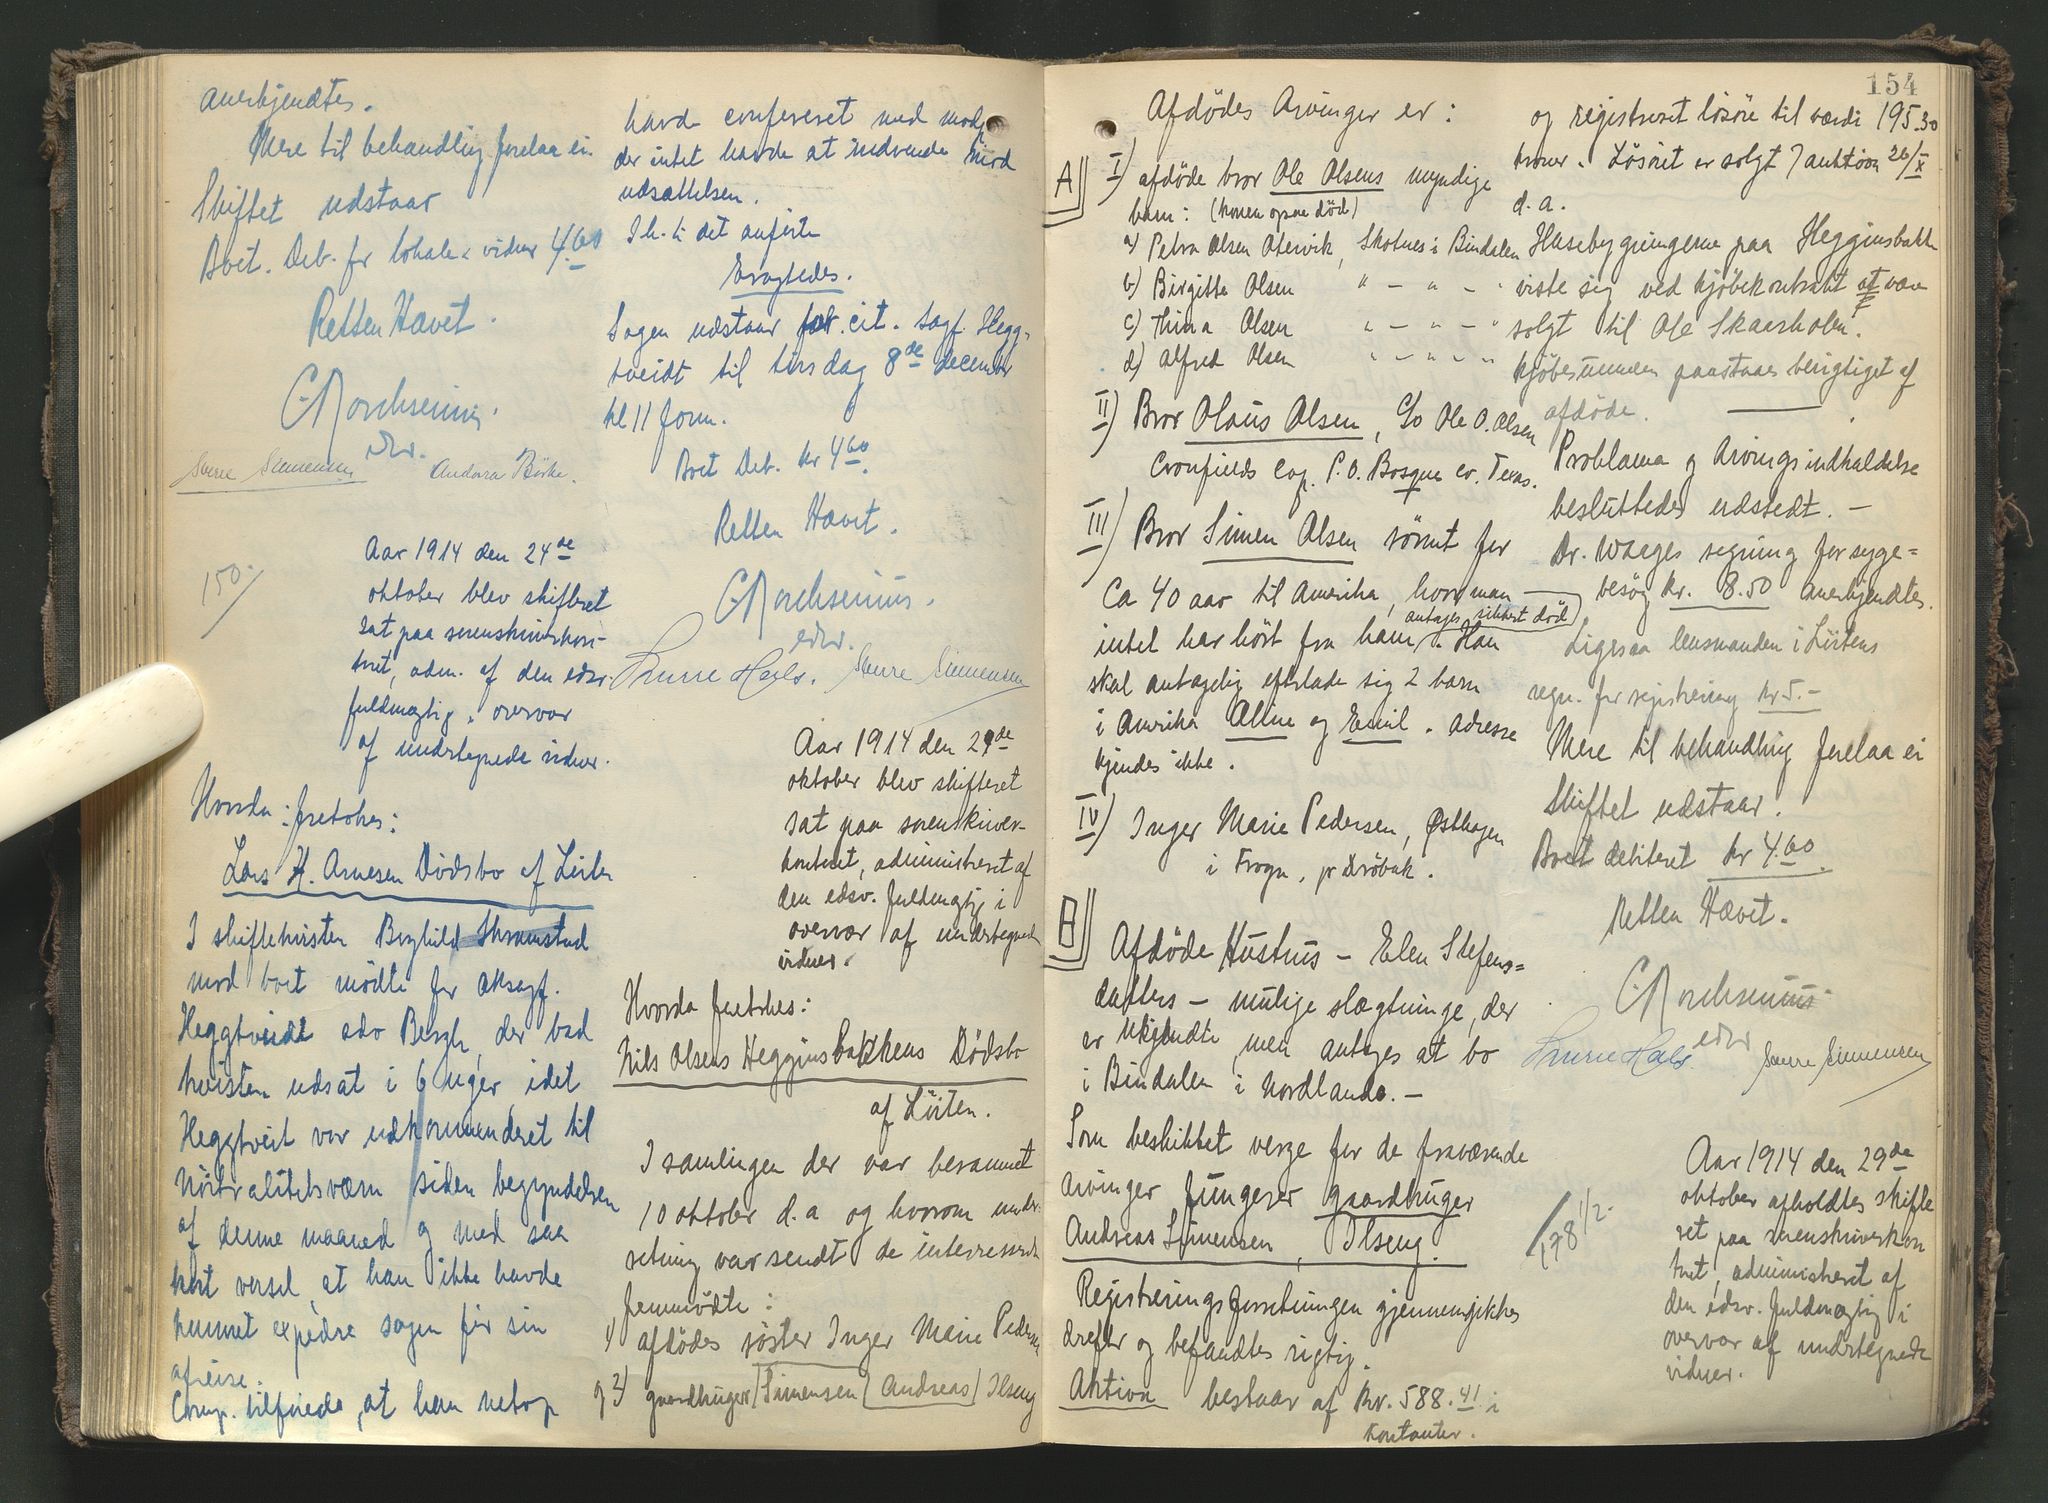 anerkjendtes.
Mere til behandling forelaa ei.
Skiftet udstaar
Boet. Deb. for lokale & vidner 4.60
Retten Hævet.
C. Borchsenius.
edsv.
Sverre Simensen Andora
150/
Aar 1914 den 24de
oktober blev skifteret
sat paa sorenskriverkon-
toret, adm. af den edsv.
fuldmægtig, overvær
af undertegnede vidner.
Hvorda: foretokes:
Lars H. Arnesen Dødsbo af Løiten
I skiftetvisten Borghild Skramstad
mod boet mødte for oksagf.
Heggtveidt adv Bergh, der bad
tvisten udsat i 6 uger, idet
Heggtveit var udkommanderet til
Nøitralitetsværn siden begyndelsen
af denne maaned og med saa
kort varsel, at han ikke havde
kunnet expedre sagen før sin
afreise.
Comp. tilføiede, at han netop
havde confereret med modp
der intet havde at indvende mod
udsættelsen.
I h. t. det anførte
Eragtedes.
Sagen udstaar for cit. sagf. Hegg-
tveidt til tirsdag 8de december
kl 11 form.
Boet Deb. kr 4.60.
Retten Hævet.
C. Borchsenius.
edsv.
Hals. Sverre Simensen
Aar 1914 den 29de
oktober blev skifteret
sat paa sorenskriver-
kontoret, administreret af
den edsv. fuldmægtig i
overvær af undertegnede
vidner.
Hvorda foretokes:
Nils Olsens Hegginsbakkens Dødsbo
af Löiten.
I samlingen der var berammet
10 oktober d. a og hvorom under-
retning var sendt de interesserede
fremmödte:
1) afdödes söster Inger Marie Pedersen
og 2) gaardbruger Simensen (Andreas) Ilseng
154
Afdödes Arvinger er:
A) I) afdöde bror Ole Olsens myndige
barn: (konen ogsaa död)
a) Petra Olsen Otervik, Skotnes i Bindalen
b) Birgitte Olsen " - " - "
c) Thina Olsen " - " - "
d) Alfred Olsen " - " - "
II) Bror Olaus Olsen, C/o Ole O. Olsen
Cronfields Cap. P. O. Bosque co. Texas.
III) Bror Simen Olsen römt for
Ca 40 aar til Amerika, hvor man
antages sikkert död
intet har hört fra ham. Han
skal antagelig efterlade sig 2 barn
i Amerika Aline og Emil. Adresse
kjendes ikke.
IV) Inger Marie Pedersen, Østhagen
i Frogn, pr Dröbak.
B) Afdöde Hustrus - Elen Stefens-
datters - mulige slægtninge, der
er ukjendte, men antages at bo
i Bindalen i Nordlande. -
Som beskikket verge for de fraværende
arvinger fungerer gaardbruger
Andreas Simensen, Ilseng.
Registreringsforretningen gjennemgikkes
derefter og befandtes rigtig.
Aktiva bestaar af Kr. 588.41 i
kontanter.
og registreret lösöre til værdi 195.30
kroner. Lösöret er solgt i auktion 26/X
d. a.
Husebygningerne paa Hegginsbakk
viste sig ved kjöbekontrakt at være
solgt til Ole Skaarholen.
kjöbesummen paastaaes berigtiget af
afdöde.
Proklama og Arvingsindkaldelse
besluttedes udstedt. -
Dr. Waages regning for syge-
besög kr. 8.50 anerkjendtes.
Ligesaa lensmanden i Löitens
regn. for registrering kr 5.-
Mere til behandling forelaa ei
Skiftet udstaar.
Boet debiteret kr 4.60.
Retten Hævet.
C. Borchsenius.
edsv
Hals Sverre Simensen
178 1/2.
Aar 1914 den 29de
oktober afholdtes skifte
ret paa sorenskriverkon
toret, administreret af
den edsv. fuldmægtig i
overvær af undertegnede
vidner.